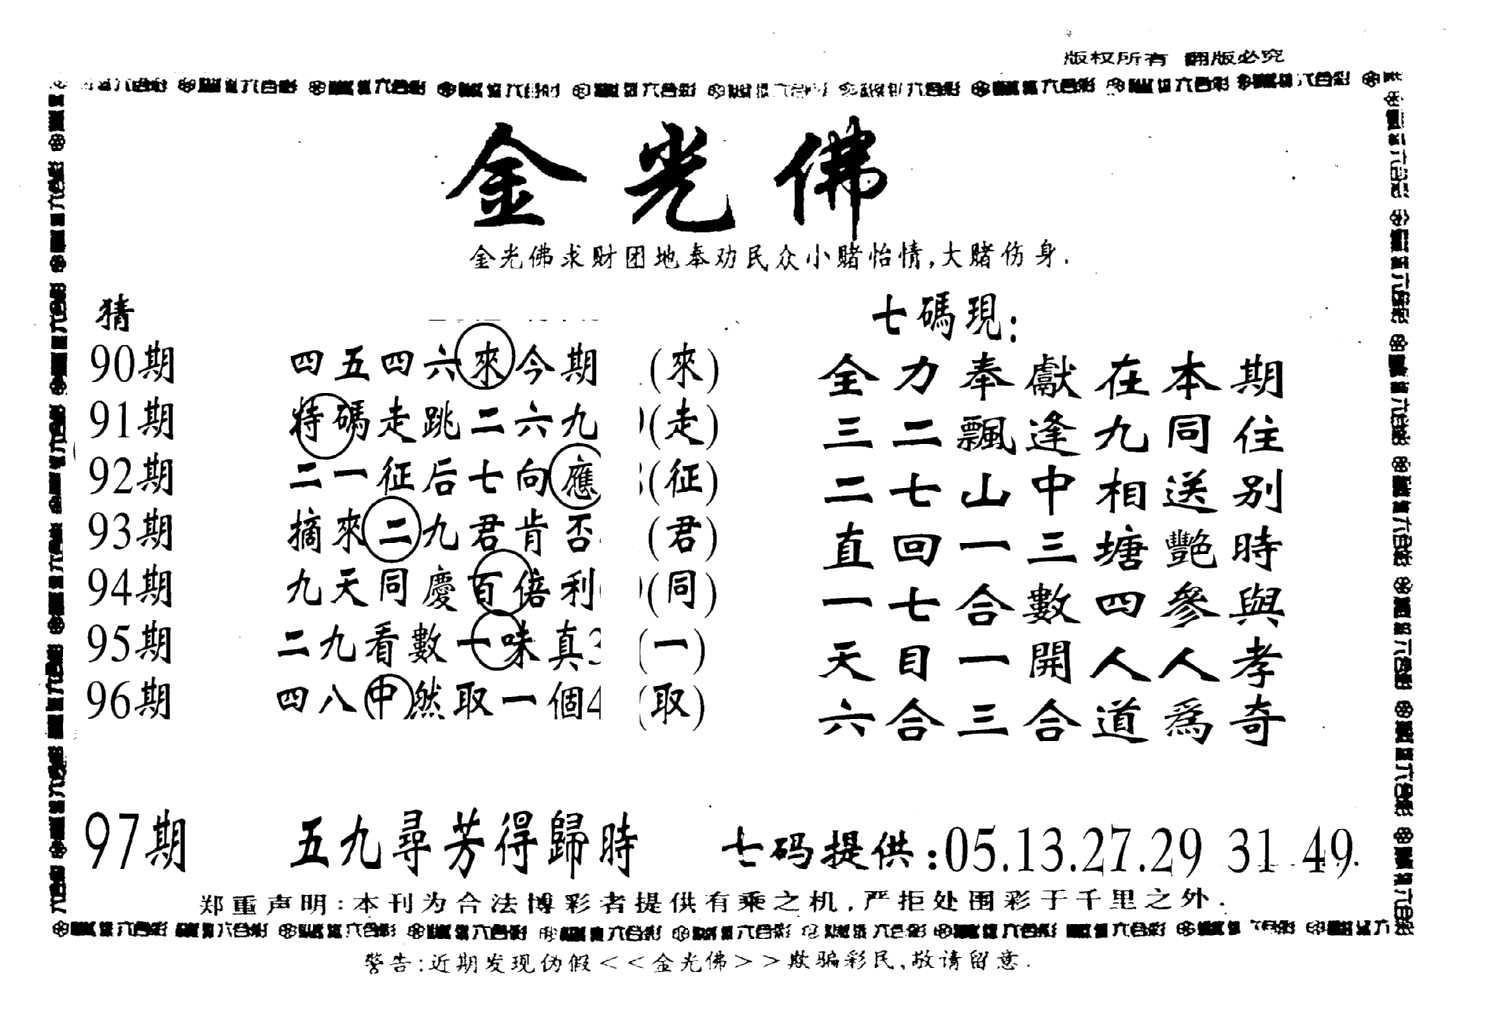 版权所有 翻版必究
金光佛
金光佛求财团地奉劝民众小赌怡情,大赌伤身.
猜
90期 四五四六來今期 (來)
91期 特碼走跳二六九 (走)
92期 二一征后七向應 (征)
93期 摘來二九君肯否 (君)
94期 九天同慶百倍利 (同)
95期 二九看數一味真3 (一)
96期 四八中然取一個4 (取)
七碼現:
全力奉獻在本期
三二飄逢九同住
二七山中相送别
直回一三塘艷時
一七合數四參與
天目一開人人孝
六合三合道爲奇
97期 五九尋芳得歸時 七码提供:05.13.27.29 31.49.
郑重声明:本刊为合法博彩者提供有乘之机,严拒处围彩于千里之外.
警告:近期发现伪假<<金光佛>>欺骗彩民,敬请留意.